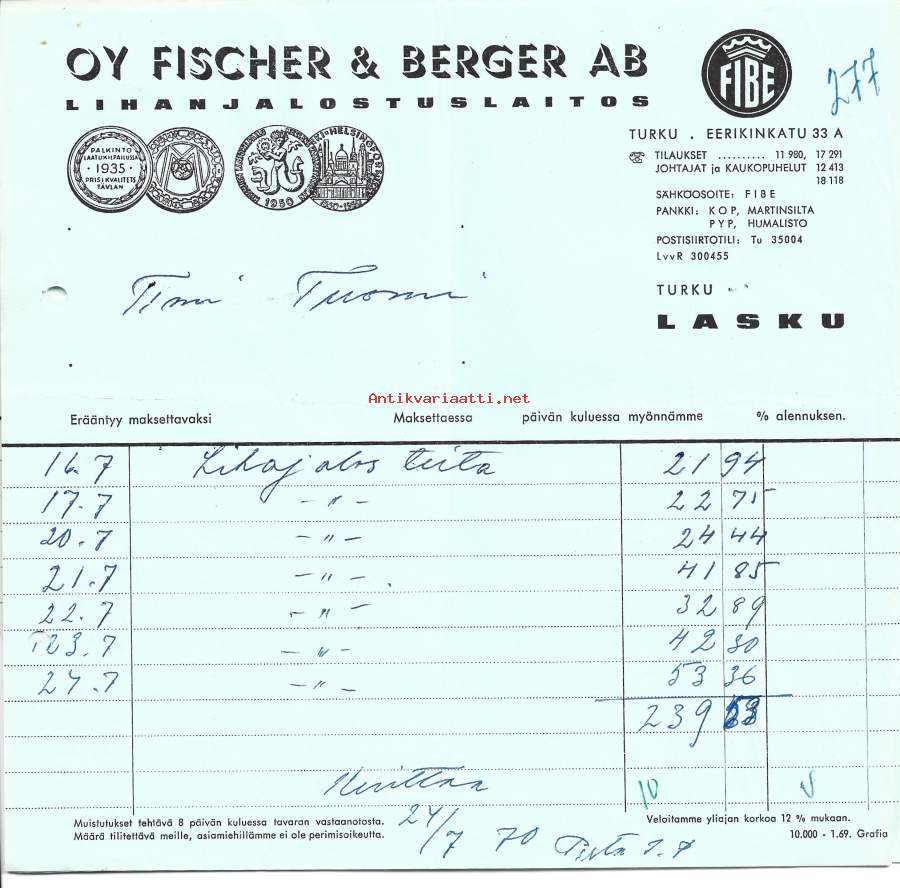 OY FISCHER & BERGER AB
LIHANJALOSTUSLAITOS
PALKINTO
LAATUKILPAILUSSA
· 1935 ·
PRIS I KVALITETS
TÄVLAN
1950
1550-1950
FIBE
277
TURKU . EERIKINKATU 33 A
TILAUKSET .......... 11 980, 17 291
JOHTAJAT ja KAUKOPUHELUT 12 413
18 118
SÄHKÖOSOITE: FIBE
PANKKI: KOP, MARTINSILTA
PYP, HUMALISTO
POSTISIIRTOTILI: Tu 35004
LvvR 300455
Timi Tuomi
TURKU " "
LASKU
Antikvariaatti.net
Erääntyy maksettavaksi Maksettaessa päivän kuluessa myönnämme % alennuksen.
16.7 Lihajalosteita 21 94
17.7 -"- 22 75
20.7 -"- 24 44
21.7 -"- 41 85
22.7 -"- 32 89
23.7 -"- 42 30
24.7 -"- 53 36
239 53
Kuittaa 10
Muistutukset tehtävä 8 päivän kuluessa tavaran vastaanotosta.
Määrä tilitettävä meille, asiamiehillämme ei ole perimisoikeutta.
24/7 70
Veloitamme yliajan korkoa 12 % mukaan.
10.000 - 1.69. Grafia